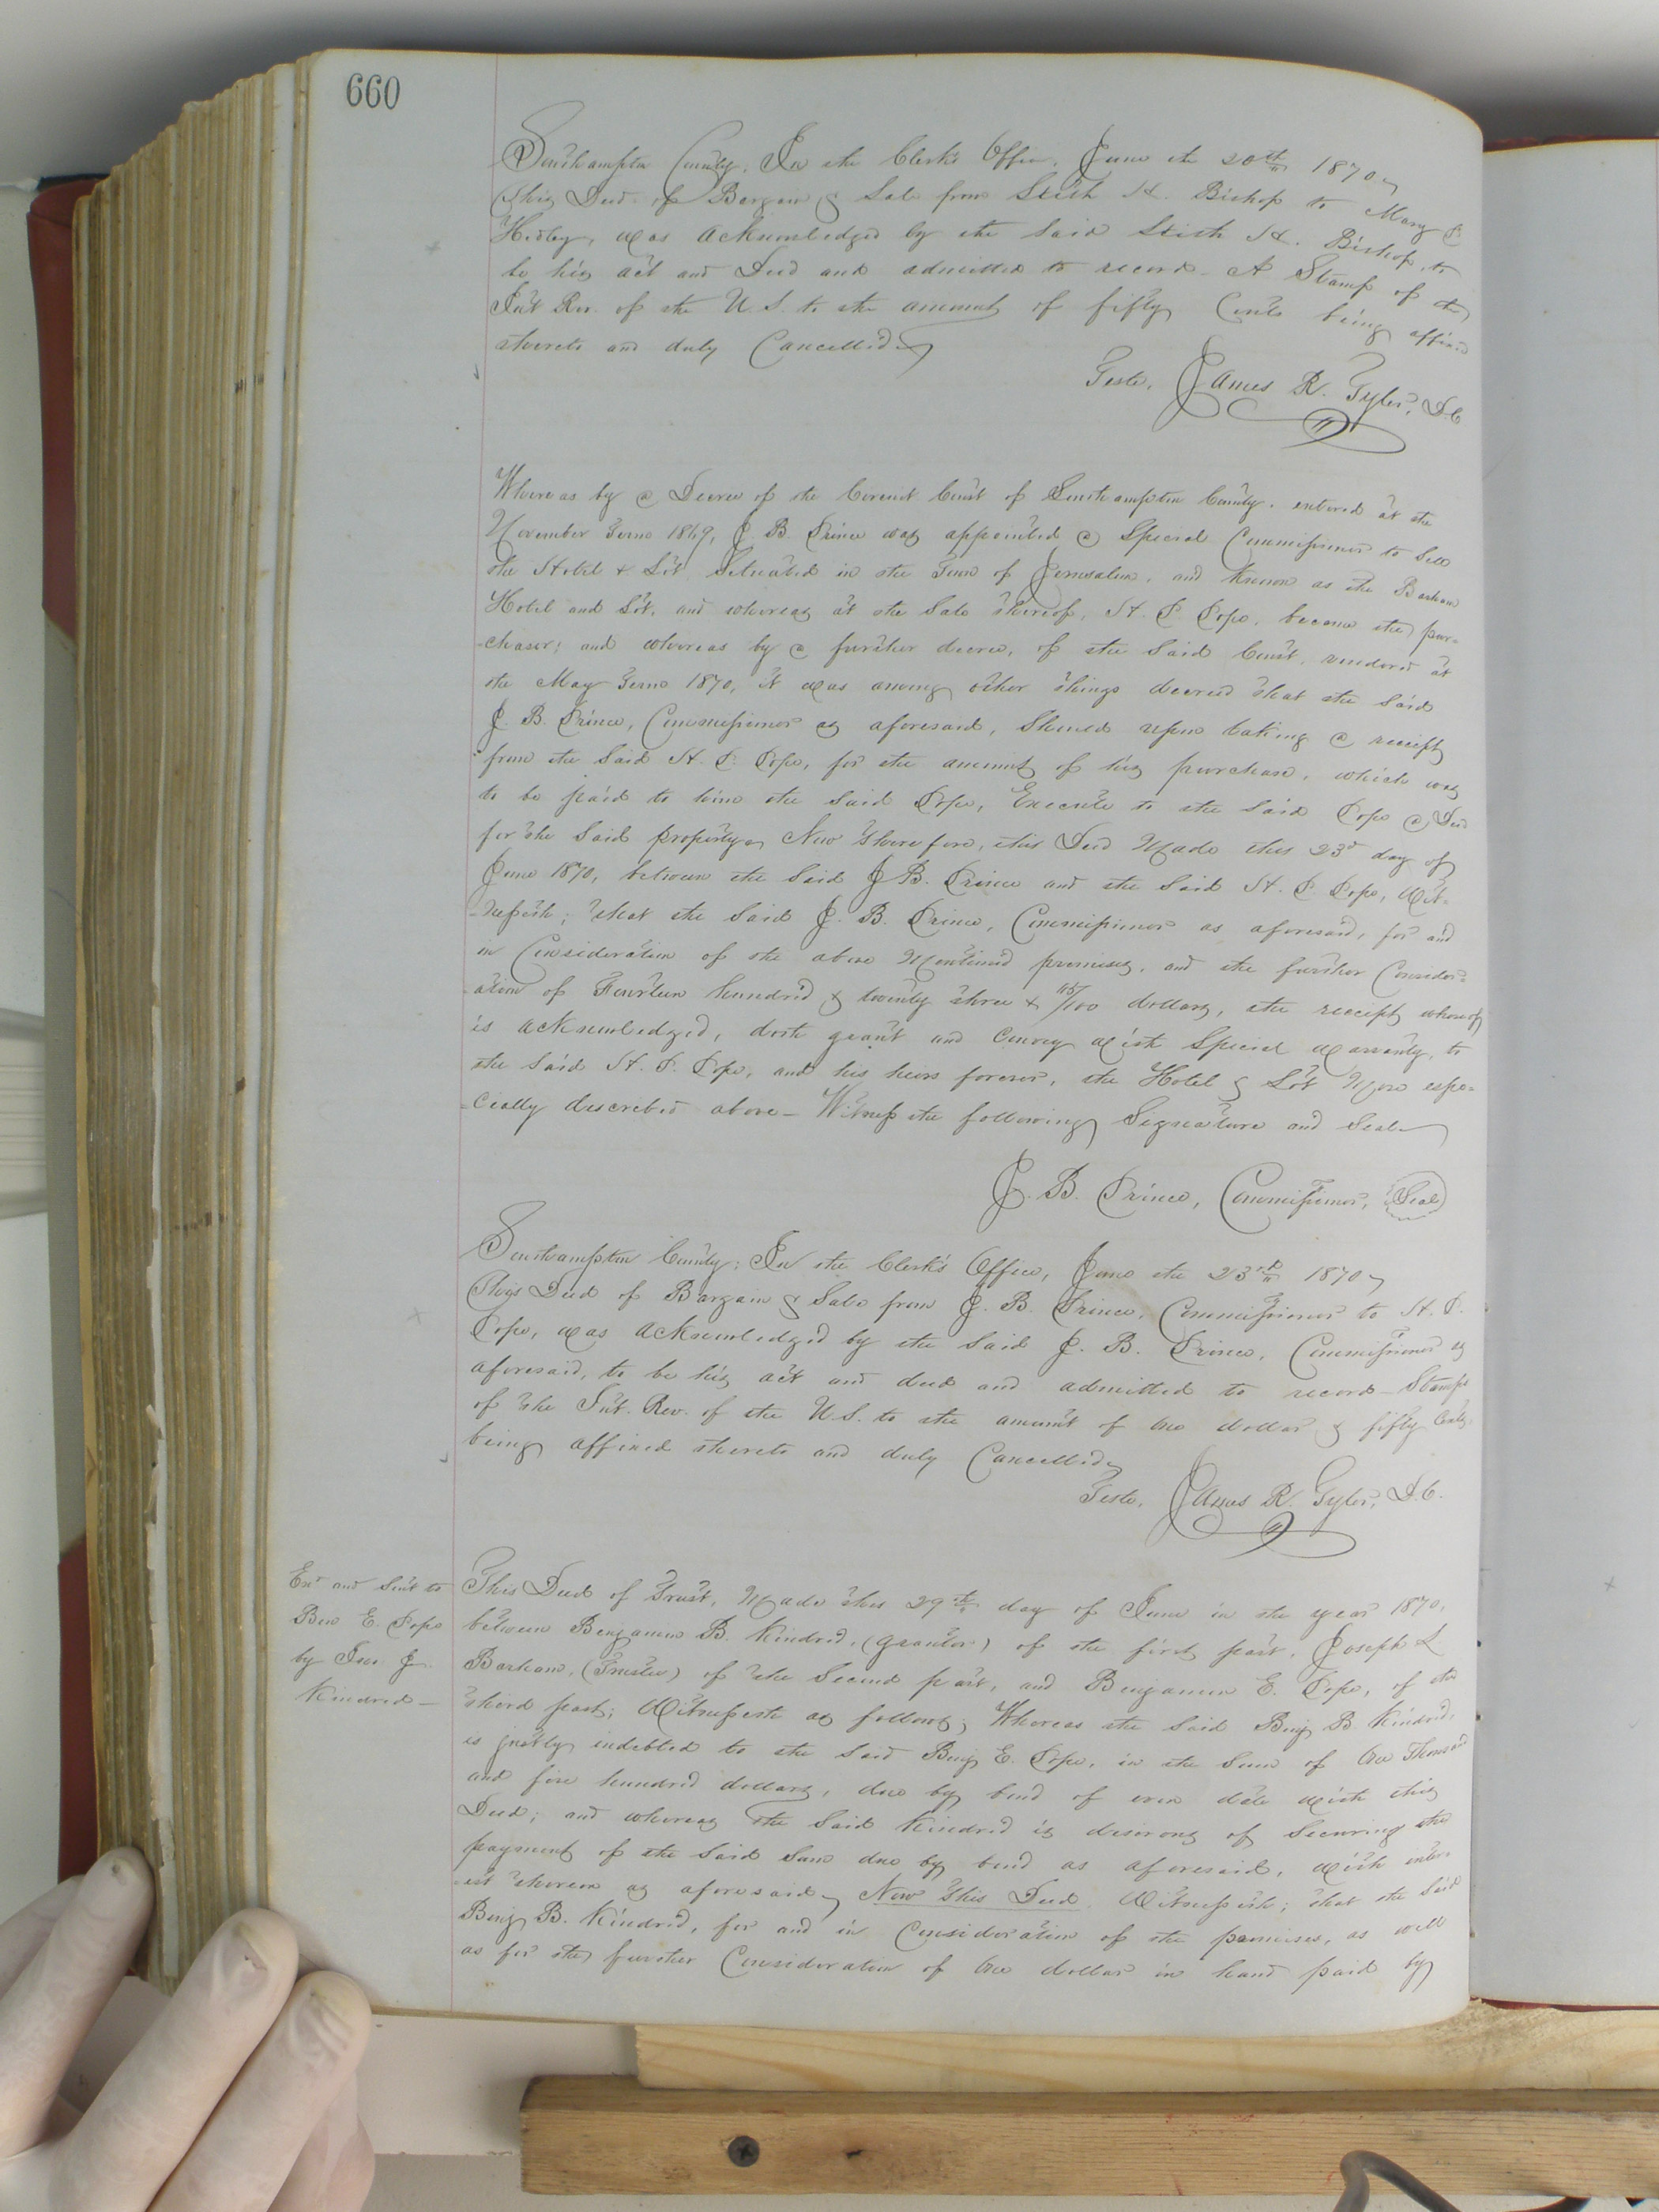 660
Southampton County, In the Clerk's Office, June the 20th 1870
This Deed of Bargain & Sale from Stith H. Bishop to Mary E
Hedley, was acknowledged by the said Stith H. Bishop, to
be his act and Deed and admitted to record. A Stamp of the
Int Rev. of the U.S. to the amount of fifty Cents being affixed
thereto and duly Cancelled
Teste, James R. Tyler, D.C
Whereas by a Decree of the Circuit Court of Southampton County, entered at the
November Term 1869, J. B. Prince was appointed a Special Commissioner to sell
the Hotel & Lot, Situated in the Town of Jerusalem, and known as the Barham
Hotel and Lot, and whereas at the Sale thereof, H. P. Pope, became the pur=
=chaser; and whereas by a further decree, of the said Court, rendered at
the May Term 1870, it was among other things decreed that the said
J. B. Prince, Commissioner as aforesaid, should upon taking a receipt
from the said H. P. Pope, for the amount of his purchase, which was
to be paid to him the said Pope, Execute to the said Pope a Deed
for the said property. Now therefore, this Deed Made this 23d day of
June 1870, between the said J B. Prince and the said H. P. Pope, Wit=
=nesseth; that the said J. B. Prince, Commissioner as aforesaid, for and
in Consideration of the above Mentioned premises, and the further Consider=
=ation of Fourteen hundred & twenty three & /100 dollars, the receipt whereof
is acknowledged, doth grant and convey with Special warranty, to
the said H. P. Pope, and his heirs forever, the Hotel & Lot More espe=
=cially described above— Witness the following Signature and Seal
J. B. Prince, Commissioner, Seal
Southampton County; In the Clerk's Office, June the 23rd 1870
This Deed of Bargain & Sale from J. B. Prince, Commissioner to H. P.
Pope, was acknowledged by the said J. B. Prince, Commissioner as
aforesaid, to be his act and deed and admitted to record— Stamps
of the Int. Rev. of the U.S. to the amount of one dollar & fifty Cents,
being affixed thereto and duly Cancelled
Teste, James R. Tyler, D.C.
Exd and Sent to
Ben E. Pope
by Jno J.
Kindred—
This Deed of Trust, Made this 29th day of June in the year 1870,
between Benjamin B. Kindred, (grantor) of the first part, Joseph L
Barham, (Trustee) of the Second part, and Benjamin E. Pope, of the
third part; Witnesseth as follows; Whereas the said Benj B Kindred,
is justly indebted to the said Benj E. Pope, in the Sum of One Thousand
and five hundred dollars, due by bond of even date with this
Deed; and whereas the said Kindred is desirous of Securing the
payment of the said Sum due by bond as aforesaid, with inter=
=est thereon as aforesaid, Now this Deed Witnesseth; that the said
Benj B. Kindred, for and in Consideration of the premises, as well
as for the further Consideration of One dollar in hand paid by